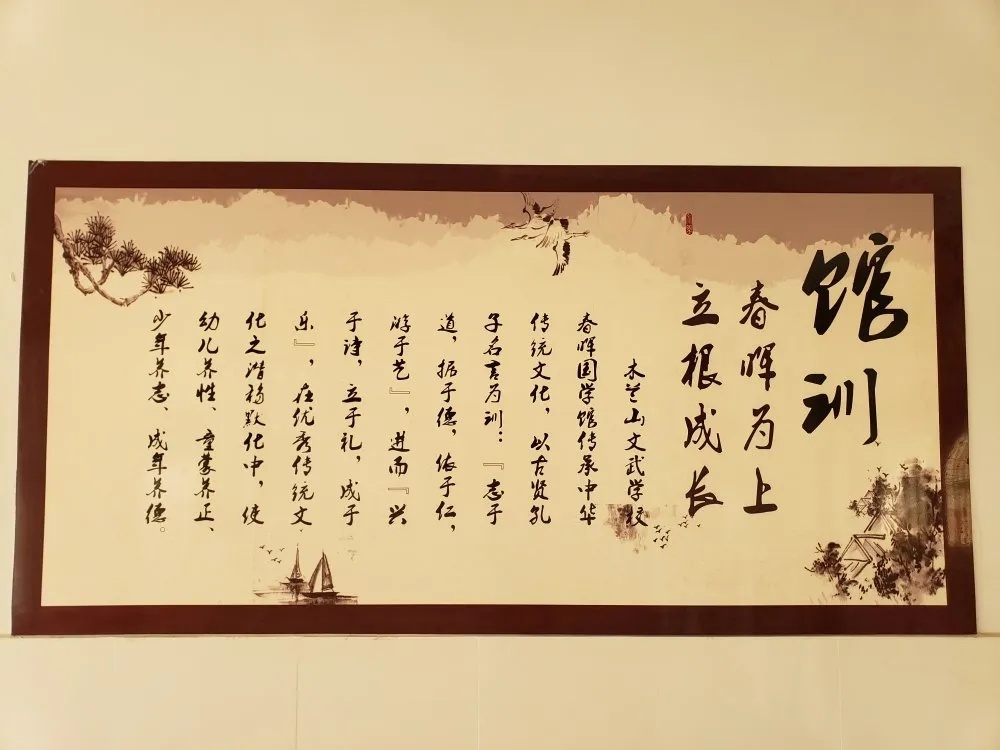 馆训
春晖为上
立根成长
木兰山文武学校
春晖国学馆传承中华
传统文化，以古贤孔
子名言为训：『志于
道，据于德，依于仁，
游于艺』，进而『兴
于诗，立于礼，成于
乐』，在优秀传统文
化之潜移默化中，使
幼儿养性、童蒙养正、
少年养志、成年养德。